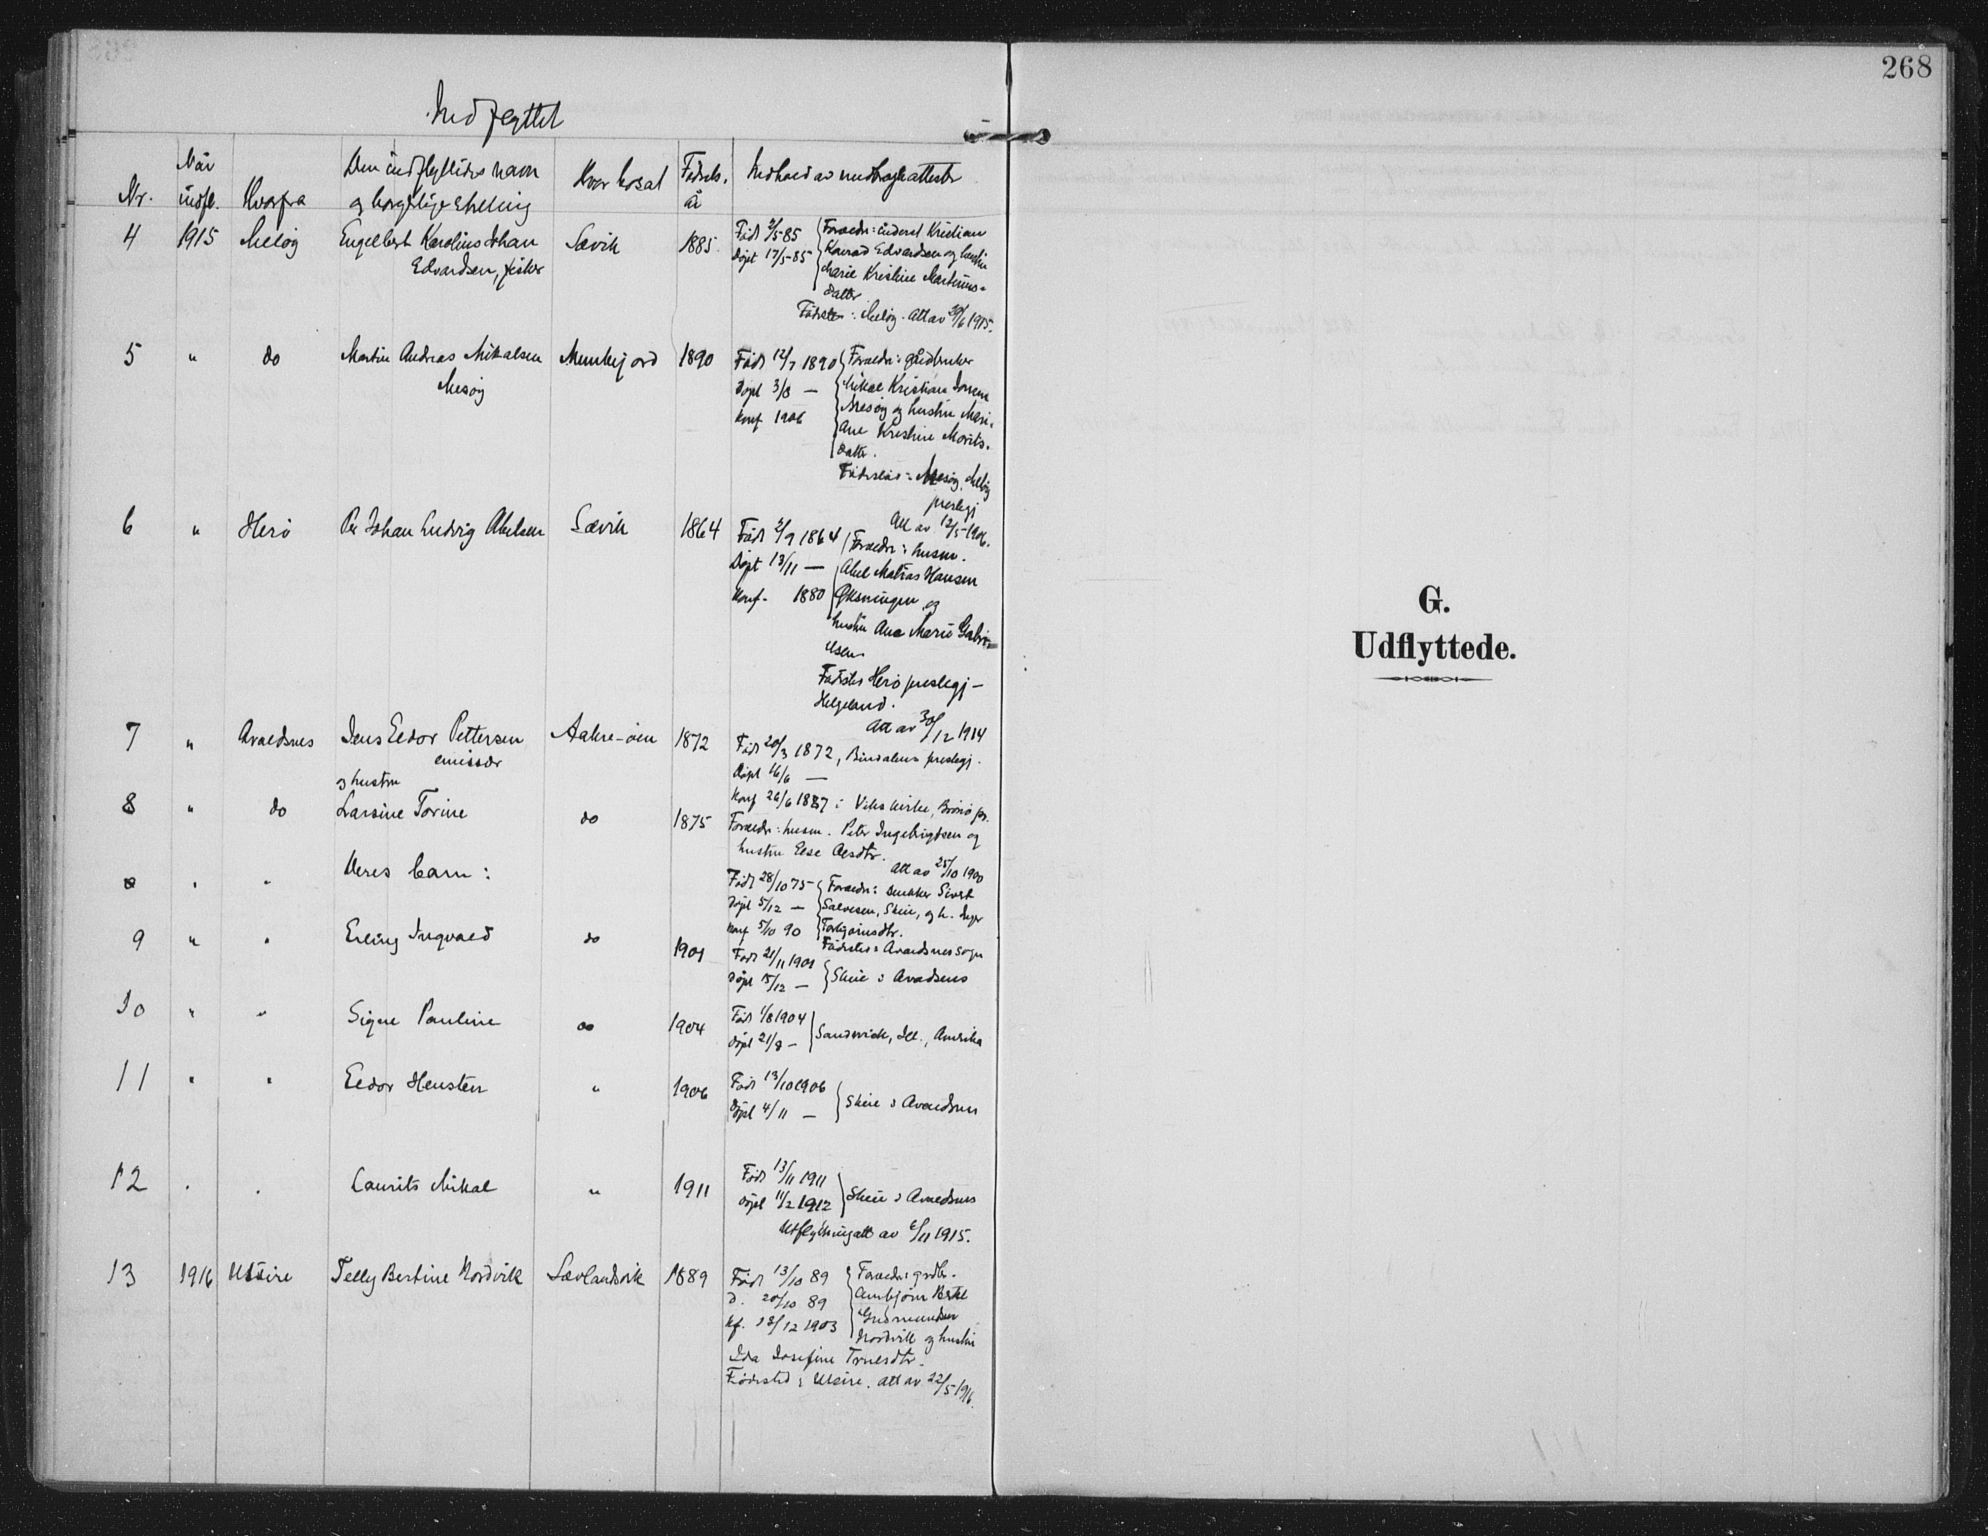 268
Indflyttet
Nr.
Når indfl.
Hvorfra
Den indflyttedes navn og borgerlige stilling
Hvor bosat
Fødsels år
Indhold av medbragt attester
4 1915 Meløy Engelbert Karolius Johan Sævik 1885
Edvardsen, fisker
Født 2/5-85 Foreldr: inderst Kristian
Døpt 17/5-85 Konrad Edvardsen og hustru
Marie Kristine Martinus-
datter
Fødested: Meløy. Att av 29/6 1915.
5 " do Martin Andreas Mikalsen Munkejord 1890
Mesøy
Født 12/7 1890 Foreldr: gårdbruker
Døpt 3/8 — Mikal Kristian
Konf 1906 Mesøy og hustru Mari-
Ane Kristine Morits-
datter.
Fødested: Mesøy, Meløy
prestegj
Att av 12/5-1906.
6 " Herø Per Johan Ludvig Abelsen Sævik 1864
Født 2/9 1864 Foreldr: husm.
Døpt 13/11 — Abel Matias Hansen
Konf. 1880 Øksningen og
hustru Ane Marie Gabri-
elsen
Fødested Herø prestegj —
Helgeland.
Att av 30/12 1914
7 " Avaldsnes Jens Eedor Pettersen Aakre-øen 1872
emissær
og hustru
Født 20/3 1872, Bindalens prestegj.
Døpt 16/6 —
Konf 26/6 1887 i Viks kirke, Brønø pr.
Foreldr: husm. Peter Ingebrigtsen og
hustru Else Olsdtr.
Att av 25/10 1900
8 " do Larsine Torine do 1875
Deres barn:
Født 28/10 75 Foreldr: snekker Sivert
Døpt 5/12 — Salvesen, Skeie, og h. Inger
Konf 5/10 90 Torbjørnsdtr.
Fødested: Avaldsnes sogn
9 " " Erling Ingvald do 1901
Født 21/11 1901 Skeie i Avaldsnes
Døpt 15/12 —
10 " " Signe Pauline do 1904
Født 1/8 1904 Sandwich, Ill., Amerika
Døpt 21/8 —
11 " " Eedor Thensten " 1906
Født 13/10 1906
Døpt 4/11 — Skeie i Avaldsnes
12 " " Laurits Mikal " 1911
Født 13/11 1911
Døpt 11/2 1912 Skeie i Avaldsnes
Utflytningsatt av 6/11 1915.
13 1916 Utsire Telly Bertine Nordvik Sævlandsvik 1889
Født 13/10 89 Foreldr: grdbr.
D. 20/10 89 Arnbjørn
Kf. 13/12 1903 Gudmundsen
Nordvik og hustru
Ida Josefine Truesdtr.
Fødested: Utsire. Att av 22/5-1916.
G.
Udflyttede.